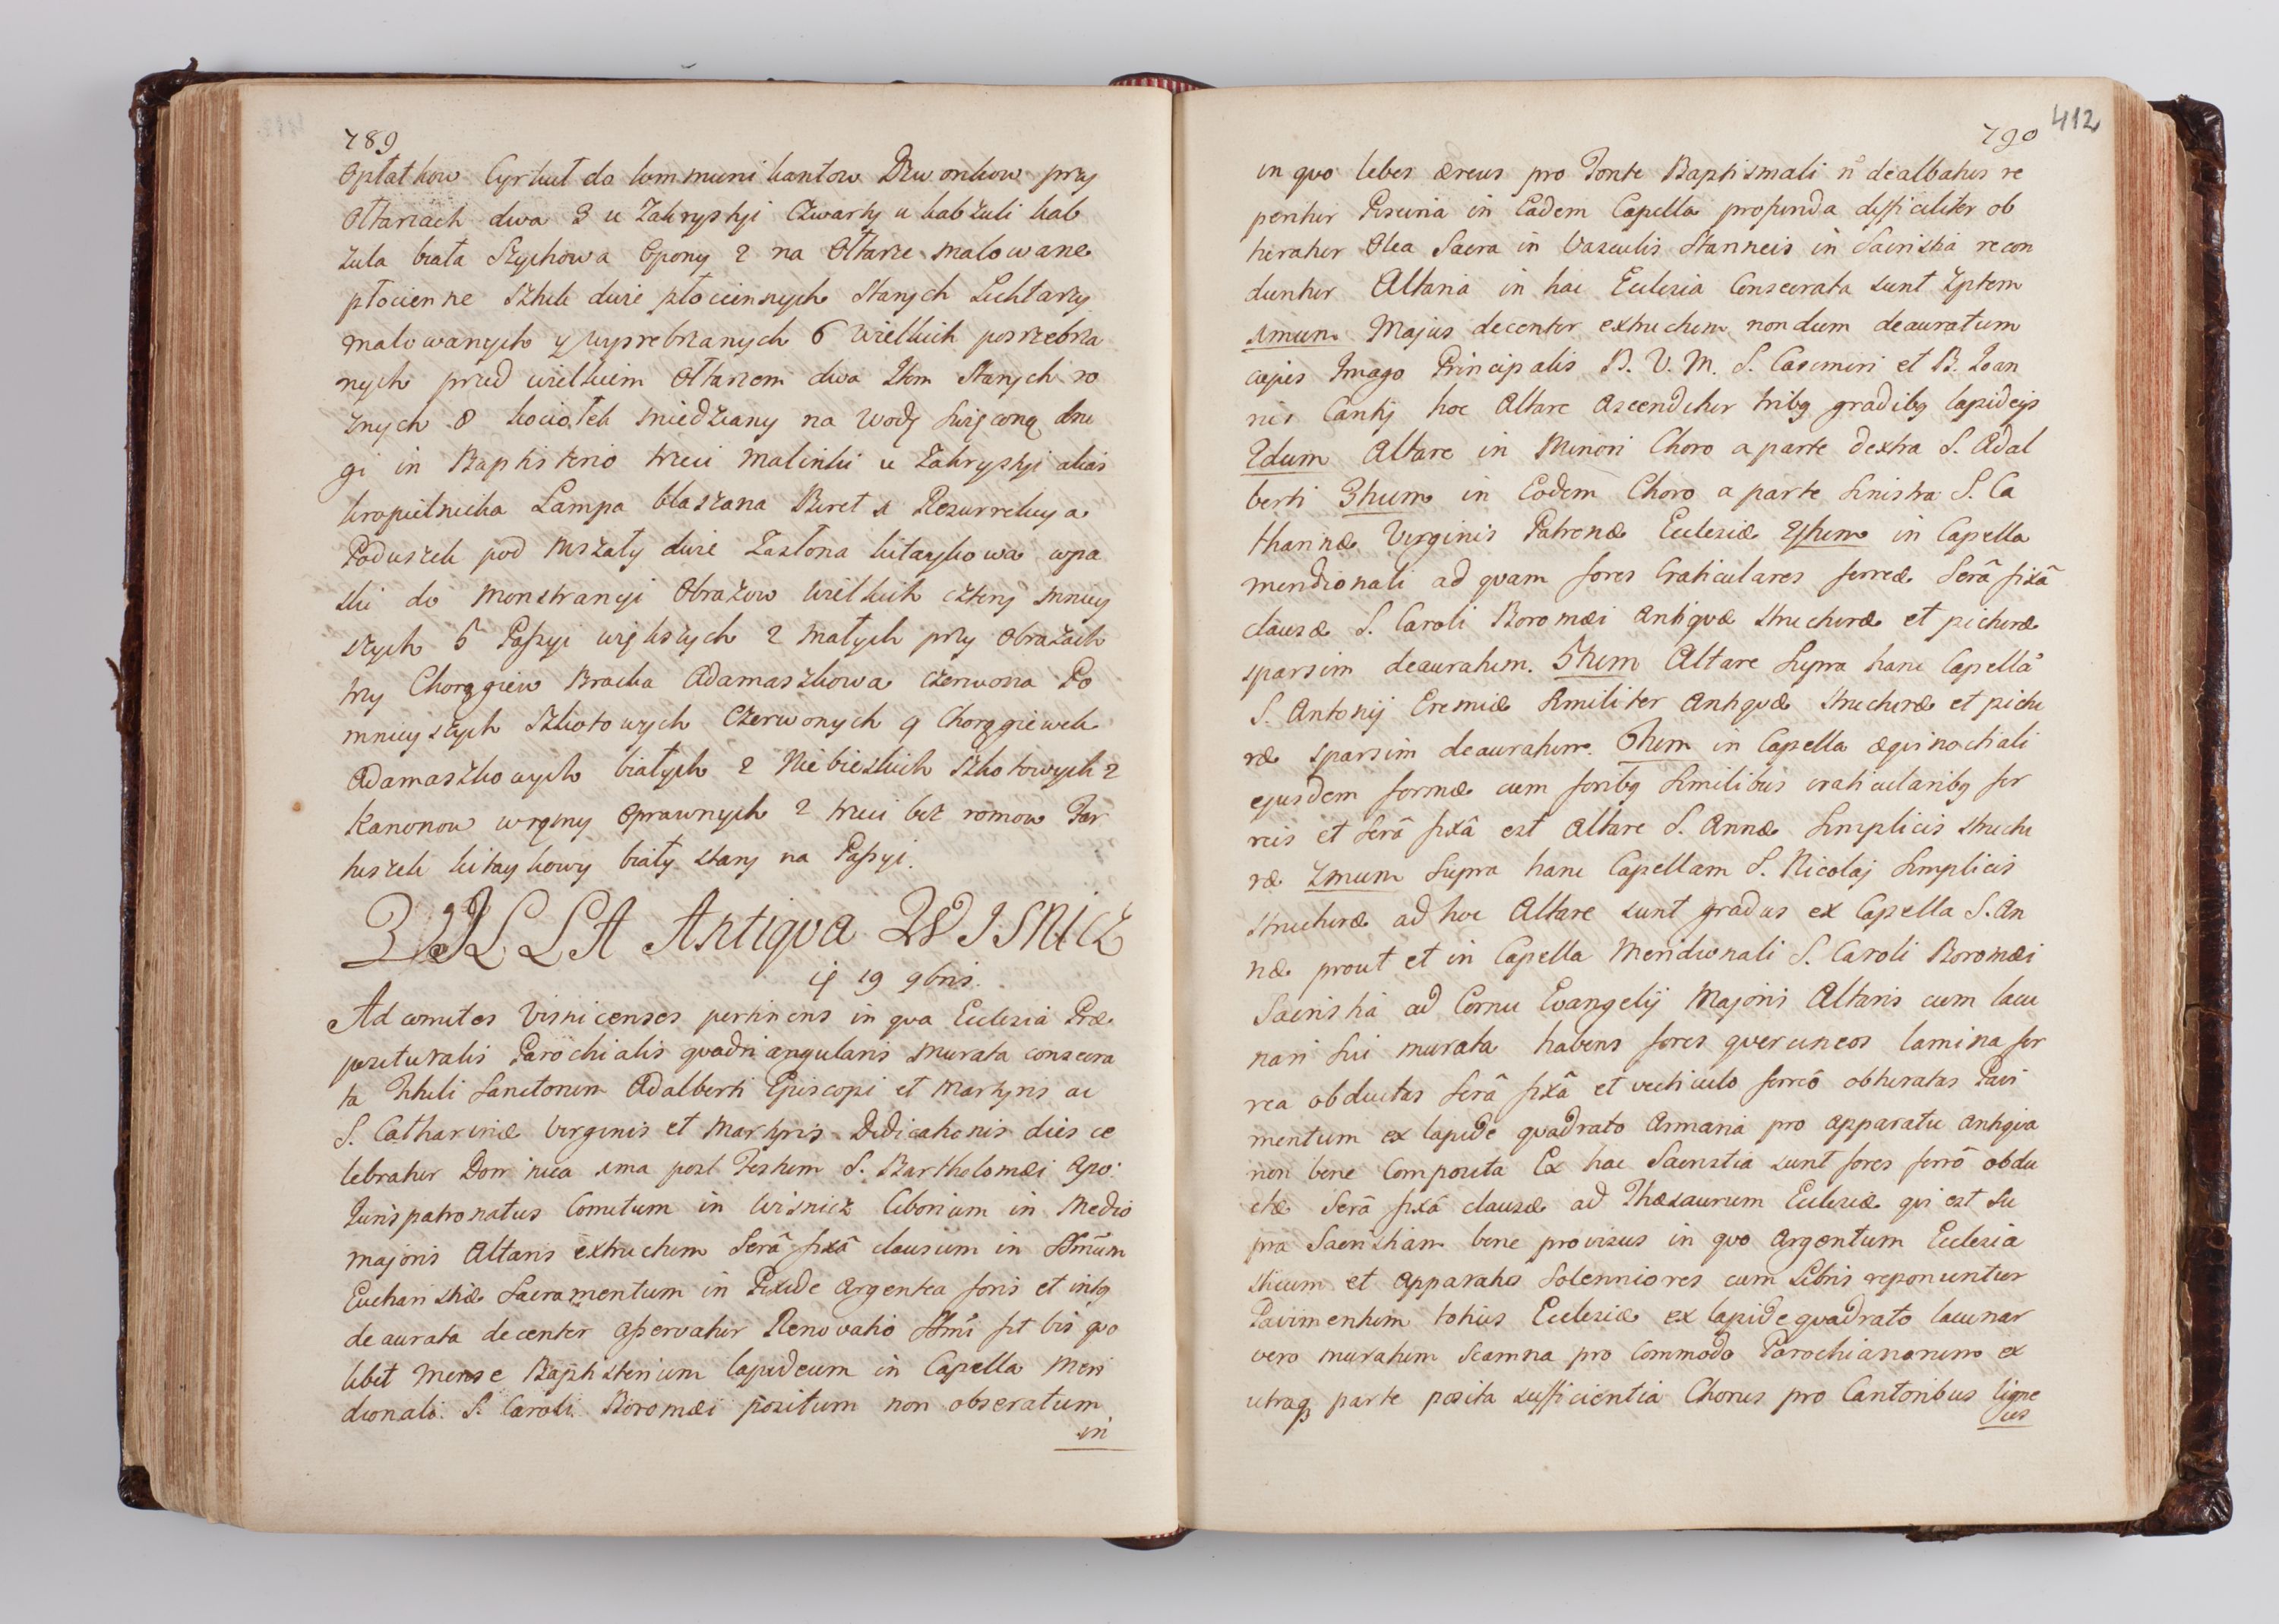 789
Opłatkow Cyrkuł do kommunikantow Dzwonkow przy
Ołtarzach dwa 3 u Zakrystyi czwarty u kabzuli kab
zula biała Szychowa Opony 2 na Ołtarze malowane
płocienne sztuk dwie płociennych starych Lichtarzy
malowanych y wysrebrzanych 6 wielkich posrebrza
nych przed wielkiem Ołtarzem dwa Item starych ro
znych 8 kociołek miedziany na wodę swięconą dru
gi in Baptisterio trzeci malinki u Zakrystyi alias
kropielnicka Lampa blaszana Biret 1 Rezurrekcya
Poduszek pod mszały dwie Zasłona kitaykowa
ski do Monstrancyi Obrazow wielkich cztery mniey
szych 5 Passyi większych 2 małych przy obrazach
trzy Chorągiew Bracka Adamaszkowa czerwona Po
mnieyszych szkotowych czerwonych 9 Chorągiewek
Adamaszkowych białych 2 Niebieskich szkotowych 2
Kanonow w ramy oprawnych 2 trzeci bez ramow Far
tuszek kitaykowy biały stary na Passyi.
VILLA Antiqua WISNICZ
19 9bris.
Ad comites Visnicenses pertinens in qva Ecclesia Præ
posituralis Parochialis qvadriangularis murata consecra
ta Tituli Sanctorum Adalberti Episcopi et Martyris ac
S. Catharinæ Virginis et Martyris Dedicationis dies ce
lebratur Dominica 1ma post Festum S. Bartholomæi Apo:
Jurispatronatus Comitum in Wisnicz Ciborium in Medio
majoris Altaris extructum Serâ fixâ clausum in SSmum
Eucharistiæ Sacramentum in Pixide Argentea foris et intq
deaurata decenter asservatur Renovatio SSmi fit bis qvo
libet Mense Baptisterium lapideum in Capella Meri
dionali S. Caroli Boromæi positum non obseratum
in
790 412
in qvo lebes æreus pro Fonte Baptismali n̄ dealbatus re
peritur Piscina in Eadem Capella profunda difficiliter ob
turatur Olea Sacra in Vasculis Stanneis in Sacristia recon
duntur Altaria in hac Ecclesia Consecrata sunt Septem
1mum Majus decenter extructum nondum deauratum
cujus Imago Principalis B. V. M. S. Casimiri et B. Joan
nis Cantij hoc Altare Ascenditur tribq gradibq lapideis
2dum Altare in Minori Choro a parte dextra S. Adal
berti 3tium in Eodem Choro a parte sinistra S. Ca
tharinæ Virginis Patronæ Ecclesiæ 4tum in Capella
meridionali ad qvam fores Craticulares ferreæ Serâ fixâ
clausæ S. Caroli Boromæi Antiqvæ structuræ et picturæ
sparsim deauratum. 5tum Altare Supra hanc Capellā
S. Antonij Eremiæ Similiter Antiqvæ structuræ et pictu
ræ sparsim deauratum. 6tum in Capella æqvinoctiali
ejusdem formæ cum foribq Similibus craticularibq fer
reis et serâ fixâ est Altare S. Annæ Simplicis structu
ræ 7mum Supra hanc Capellam S. Nicolaj Simplicis
structuræ ad hoc Altare sunt gradus ex Capella S. An
næ prout et in Capella Meridionali S. Caroli Boromæi
Sacristia ad Cornu Evangelij Majoris Altaris cum lacu
nari sui murata habens fores qverceneos lamina fer
rea obductas serâ fixâ et vecticulo ferreô obturatas Pavi
mentum ex lapide qvadrato Armaria pro apparatu antiqva
non bene Composita Ex hac Sacristia sunt fores ferrô obdu
ctæ Serâ fixâ clausæ ad Thæsaurum Ecclesiæ qvi est Su
pra Sacristiam bene provisus in qvo Argentum Ecclesia
sticum et Apparatus Solenniores cum Libris reponuntur
Pavimentum totius Ecclesiæ ex lapide qvadrato lacunar
vero muratum Scamna pro Commodo Parochianorum ex
utraq parte posita sufficientia Chorus pro Cantoribus ligne
us